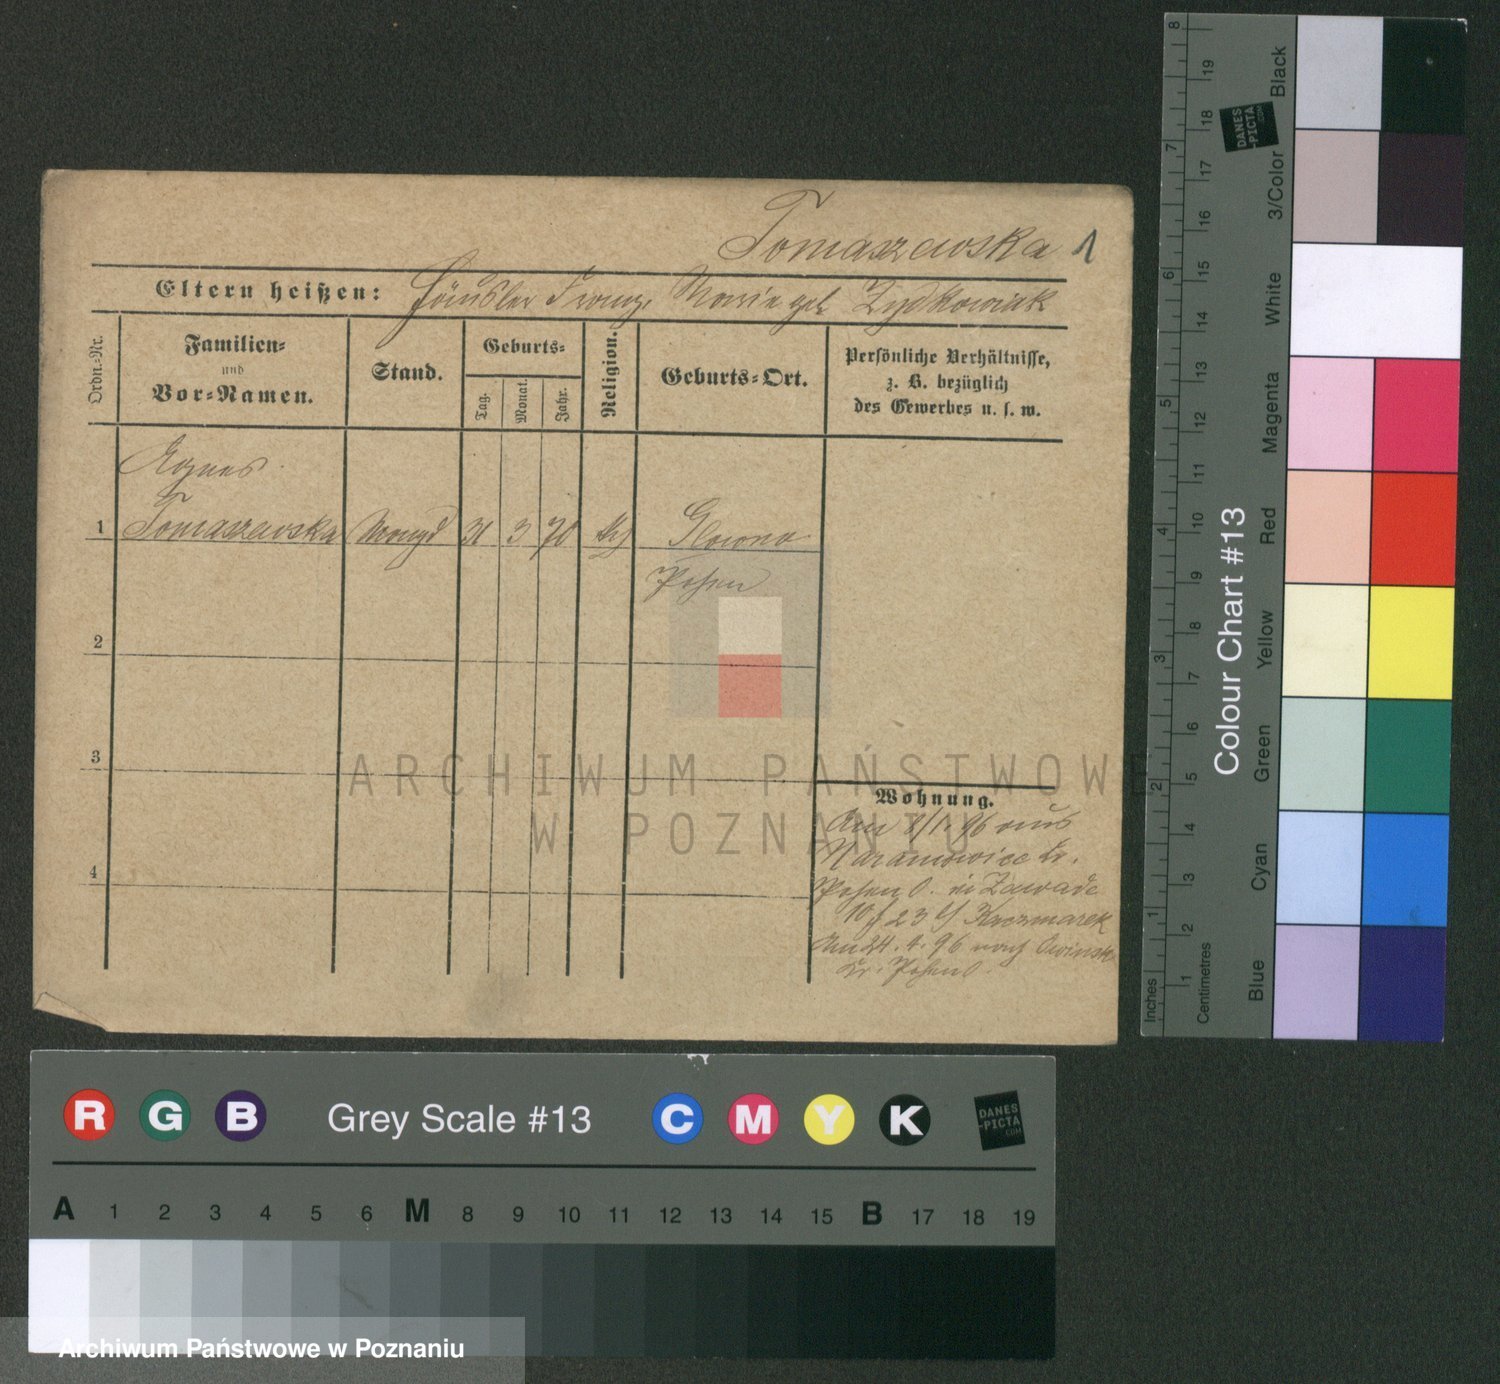 Tomaszewska 1
Eltern heißen: Häusler Franz, Marie geb Zydkowiak
Ordn.=Nr.
Familien=
und
Vor=Namen.
Stand.
Geburts=
Tag.
Monat.
Jahr.
Religion.
Geburts=Ort.
Persönliche Verhältnisse,
z. B. bezüglich
des Gewerbes u. s. w.
Agnes
1 Tomaszewska Magd 31 3 70 kth Glowno
Posen
2
3
4
Wohnung.
Am 8/1. 96 aus
Naramowice Kr.
Posen O. in Zawade
10 f 23 b/ Kaczmarek
Am 24. 4. 96 nach Owinsk
Kr. Posen O.
ARCHIWUM PAŃSTWOWE
W POZNANIU
Colour Chart #13
Black
3/Color
White
Magenta
Red
Yellow
Green
Cyan
Blue
Inches
1 2 3 4 5 6 7 8
Centimetres
1 2 3 4 5 6 7 8 9 10 11 12 13 14 15 16 17 18 19
DANES
-PICTA
.COM
R G B Grey Scale #13 C M Y K
DANES
-PICTA
.COM
A 1 2 3 4 5 6 M 8 9 10 11 12 13 14 15 B 17 18 19
Archiwum Państwowe w Poznaniu